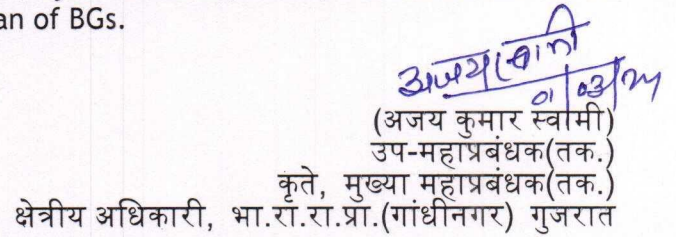 an of BGs.
अजय स्वामी
(अजय कुमार स्वामी)
उप-महाप्रबंधक(तक.)
कृते, मुख्या महाप्रबंधक(तक.)
क्षेत्रीय अधिकारी, भा.रा.रा.प्रा.(गांधीनगर) गुजरात